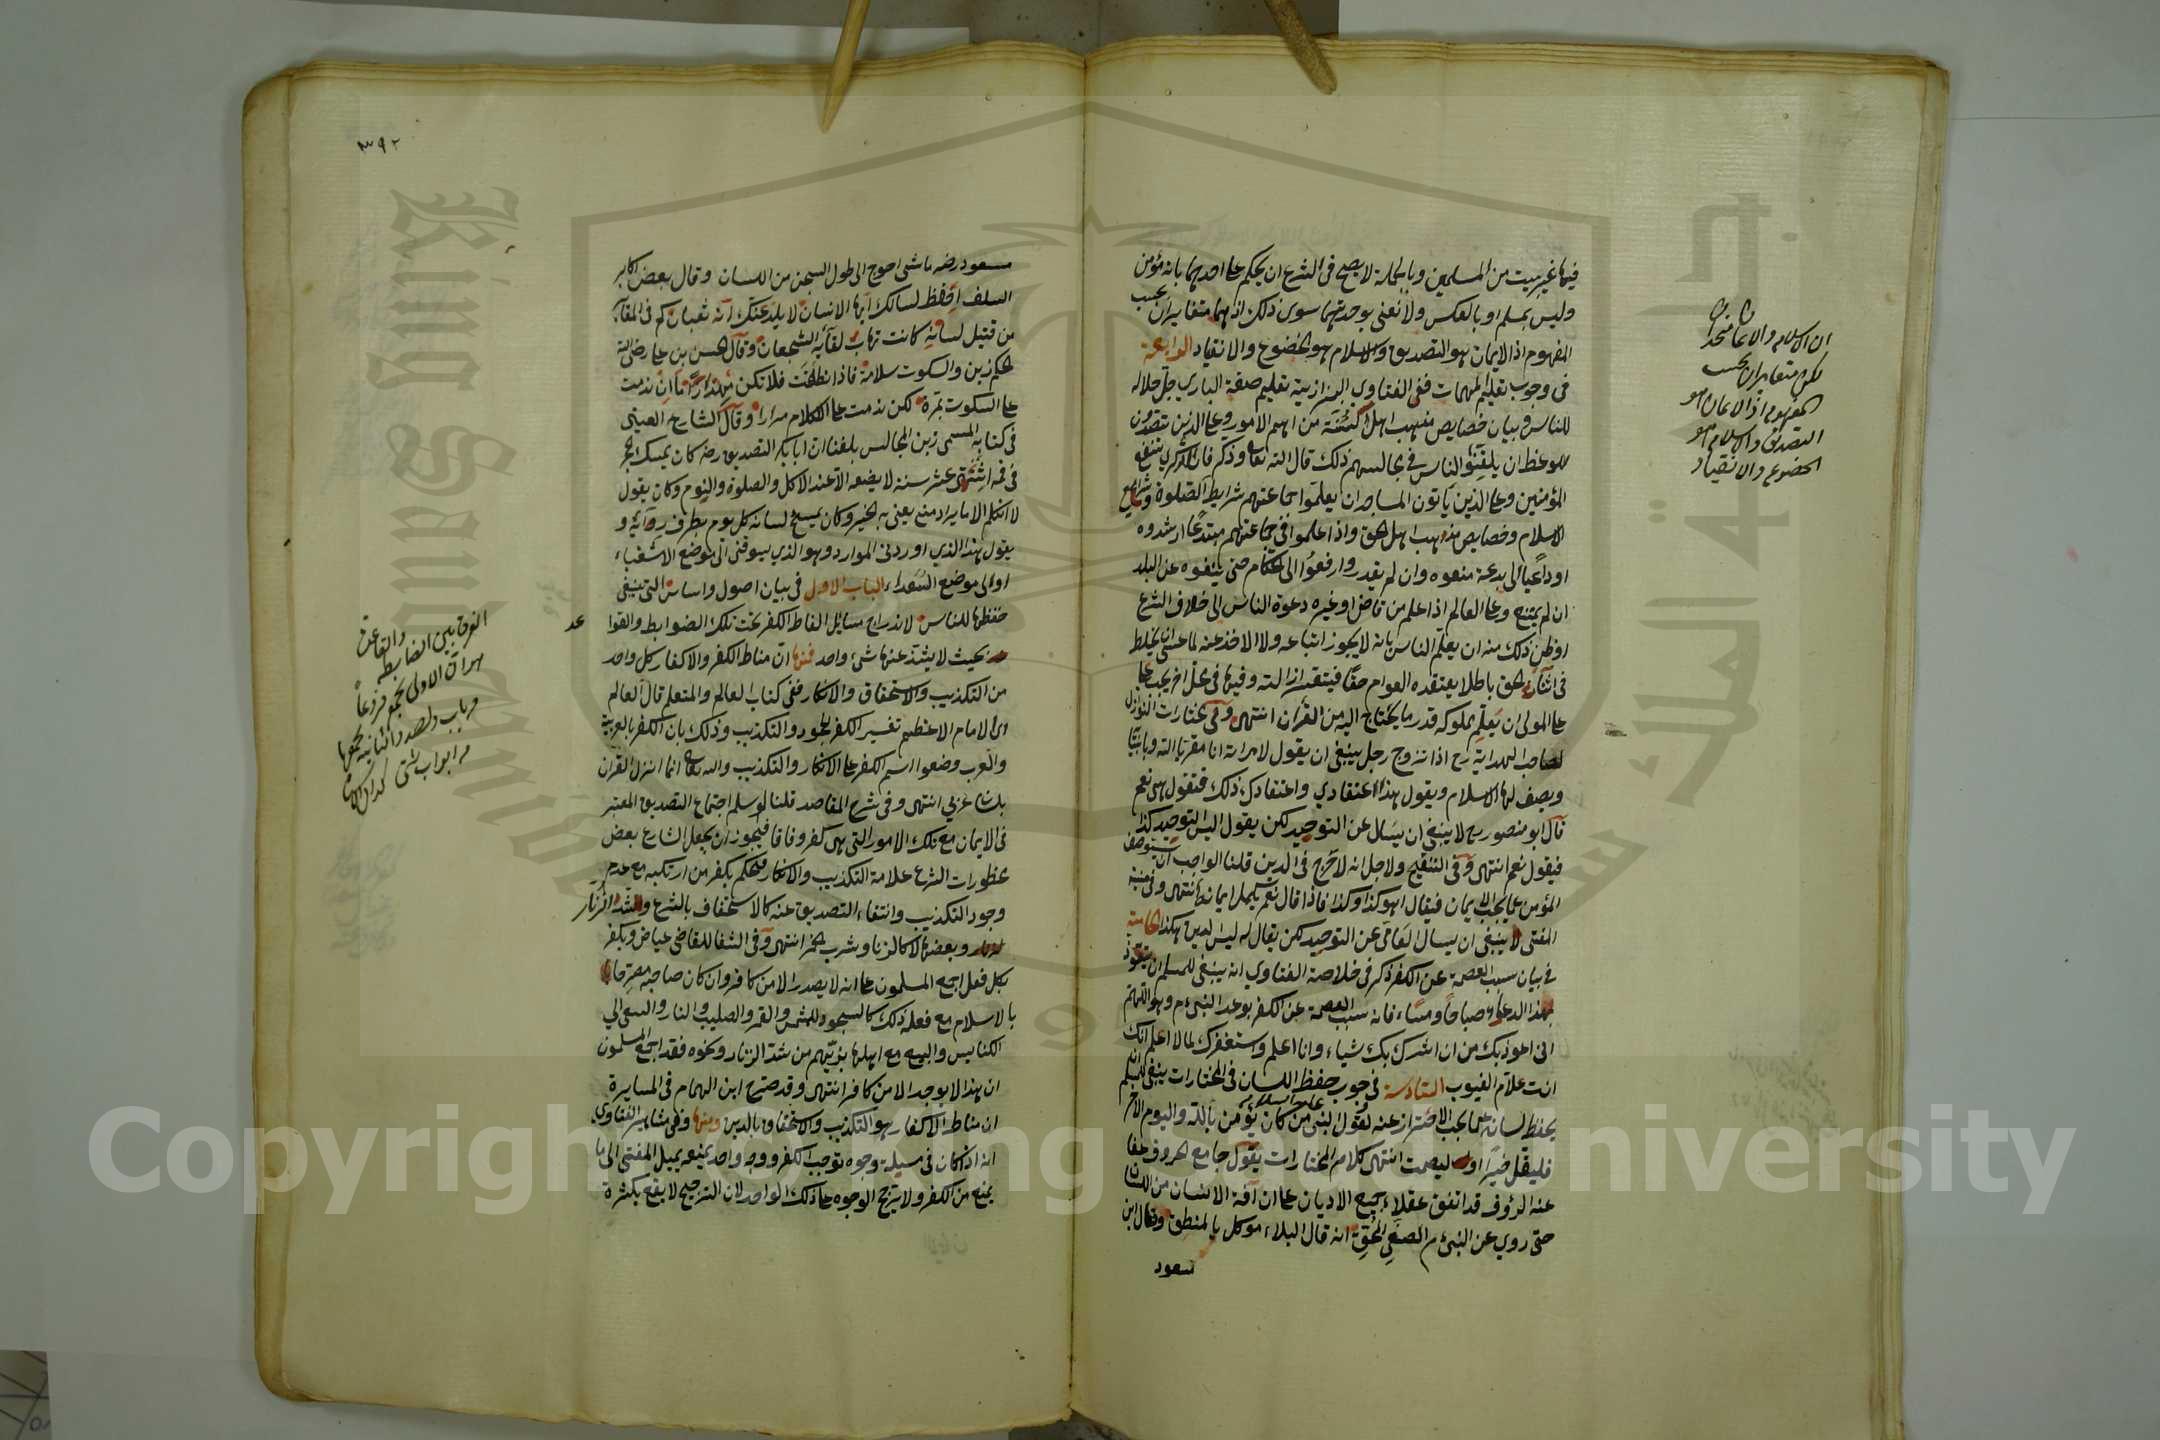 فيها غير بيت من المسلمين وبالجملة لا يصح في الشرع ان يحكم على احدهما بانه مؤمن
وليس بمسلم او بالعكس ولا نعني بوحدتهما سوى ذلك اذ هما متغايران بحسب
المفهوم اذ الايمان هو التصديق والاسلام هو الخضوع والانقياد الرابعة
في وجوب تعليم المهمات ففي الفتاوي البزازية تعليم صفة الباري جل جلاله
للناس في بيان خصايص مذهب اهل السنة من اهم الامور وعلى الذين يتصدون
للوعظ ان يلقنوا الناس في مجالسهم ذلك قال الله تعالى وذكر فان الذكرى تنفع
المؤمنين وعلى الذين يأتون المساجد ان يعلموا جماعتهم شرايط الصلوة وشرايع
الاسلام وخصايص مذهب اهل الحق واذا علموا في جماعتهم مبتدعا ارشدوه
او داعيا الى بدعة منعوه وان لم يقدروا رفعوا الى الحكام حتى ينفوه عن البلد
ان لم يمتنع وعلى العالم اذا علم من قاض او غيره دعوة الناس الى خلاف الشرع
او ظن ذلك منه ان يعلم الناس بانه لا يجوز اتباعه ولا الاخذ عنه لما عسى ان يخلط
في اثناء الحق باطلا يعتقده العوام حقا فيتعسر ازالته وفيها في محل اخر يجب
على المولى ان يعلم مملوكه قدر ما يحتاج اليه من القرآن انتهى وفي مختارات النوازل
لصاحب الهداية رح اذا تزوج رجل ينبغي ان يقول لامراته انا مقر بالله
ويصف لها الاسلام ويقول هذا اعتقادي واعتقادك ذلك فتقول هي نعم
قال ابو منصور رح لا ينبغي ان يسال عن التوحيد لكن يقول اليس التوحيد كذا
فيقول نعم انتهى وفي التنقيح ولاجل انه لا حرج في الدين قلنا الواجب ان يستوصف
المؤمن على الايمان فيقال اهو كذا وكذا فاذا قال نعم يكمل ايمانه انتهى وفي منية
المفتي لا ينبغي ان يسال العامي عن التوحيد لكن يقال له ليس الدين هكذا الخامسة
في بيان سبب العصمة عن الكفر ذكر في خلاصة الفتاوي انه ينبغي للمسلم ان يتعوذ
بهذا الدعاء صباحا ومساء فانه سبب العصمة عن الكفر بوعد النبي م وهو اللهم
اني اعوذ بك من ان اشرك بك شياء وانا اعلم واستغفرك لما لا اعلم انك
انت علام الغيوب السادسة في وجوب حفظ اللسان في المختارات ينبغي للمسلم ان
يحفظ لسانه عما يجب الاحتراز عنه لقول النبي عليه السلام من كان يؤمن بالله واليوم الآخر
فليقل خيرا او ليصمت انتهى كلام المختارات يقول جامع الحروف عفا
عنه الرؤف قد اتفق عقلاء جميع الاديان على ان آفة الانسان من اللسان
حتى روي عن النبي م انه قال البلاء موكل بالمنطق وقال ابن
مسعود
ان الاسلام والايمان متحدان
لكن متغايران بحسب
المفهوم اذ الايمان هو
التصديق والاسلام هو
الخضوع والانقياد
٣٩٢
مسعود رضه ما شئ احوج الى طول السجن من اللسان وقال بعض اكابر
السلف احفظ لسانك ايها الانسان لا يلدغنك انه ثعبان كم في المقابر
من قتيل لسانه كانت تهاب لقائه الشجعان وقال الحسن بن علي رضي الله
الحكم زين والسكوت سلامة فاذا نطقت فلا تكن مهذارا ما ان ندمت
على السكوت بمرة لكن ندمت على الكلام مرارا وقال الشارح العيني
في كتابه المسمى زين المجالس بلغنا ان ابا بكر الصديق رضه كان يمسك الحجر
في فمه اثنتي عشر سنة لا يضعه الا عند الاكل والصلوة والنوم وكان يقول
لا اتكلم الا ما يراد مني يعني به الخير وكان يمسح لسانه كل يوم بطرف ردائه و
يقول هذا الذي اوردني الموارد وهو الذي يسوقني الى موضع الاشقياء
او الى موضع السعداء الباب الاول في بيان اصول واساس التي ينبغي
حفظها للناس لاندراج مسائل الفاظ الكفر تحت تلك الضوابط والقواعد
بحيث لا يشذ عنها شئ واحد فمنها ان مناط الكفر والاكفار كل واحد
من التكذيب والاستخفاف والانكار ففي كتاب العالم والمتعلم قال العالم
اى الامام الاعظم تفسير الكفر الجحود والتكذيب وذلك بان الكفر بالعربية
والعرب وضعوا اسم الكفر على الانكار والتكذيب والله تعالى انما انزل القرآن
بلسان عربي انتهى وفي شرح المقاصد قلنا لو سلم اجتماع التصديق المعتبر
في الايمان مع تلك الامور التي هي كفر وفاقا فيجوز ان يجعل الشارع بعض
محظورات الشرع علامة التكذيب والانكار فيحكم بكفر من ارتكبه مع عدم
وجود التكذيب وانتفاء التصديق عنه كالاستخفاف بالشرع وشد الزنار
وبعضها لا كالزنا وشرب الخمر انتهى وفي الشفا للقاضي عياض ويكفر
بكل فعل اجمع المسلمون على انه لا يصدر الا من كافر وان كان صاحبه مصرحا
بالاسلام مع فعله ذلك كالسجود للشمس والقمر والصليب والنار والسعي الى
الكنايس والبيع مع اهلها بزيهم من شد الزنار ونحوه فقد اجمع المسلمون
ان هذا لا يوجد الا من كافر انتهى وقد صرح ابن الهمام في المسايرة
ان مناط الاكفار هو التكذيب والاستخفاف بالدين ومنها وفي مشاهير الفتاوي
انه اذا كان في مسيلة وجوه توجب الكفر ووجه واحد يمنعه يميل المفتي الى ما
يمنع من الكفر ولا يرجح الوجوه على ذلك الواحد لان الترجيح لا يقع بكثرة
الفرق بين الضابطة والقاعدة
هو ان الاولى تجمع فروعا
من باب واحد والثانية تجمعها
من ابواب شتى
Copyright © King Saud University
King Saud University